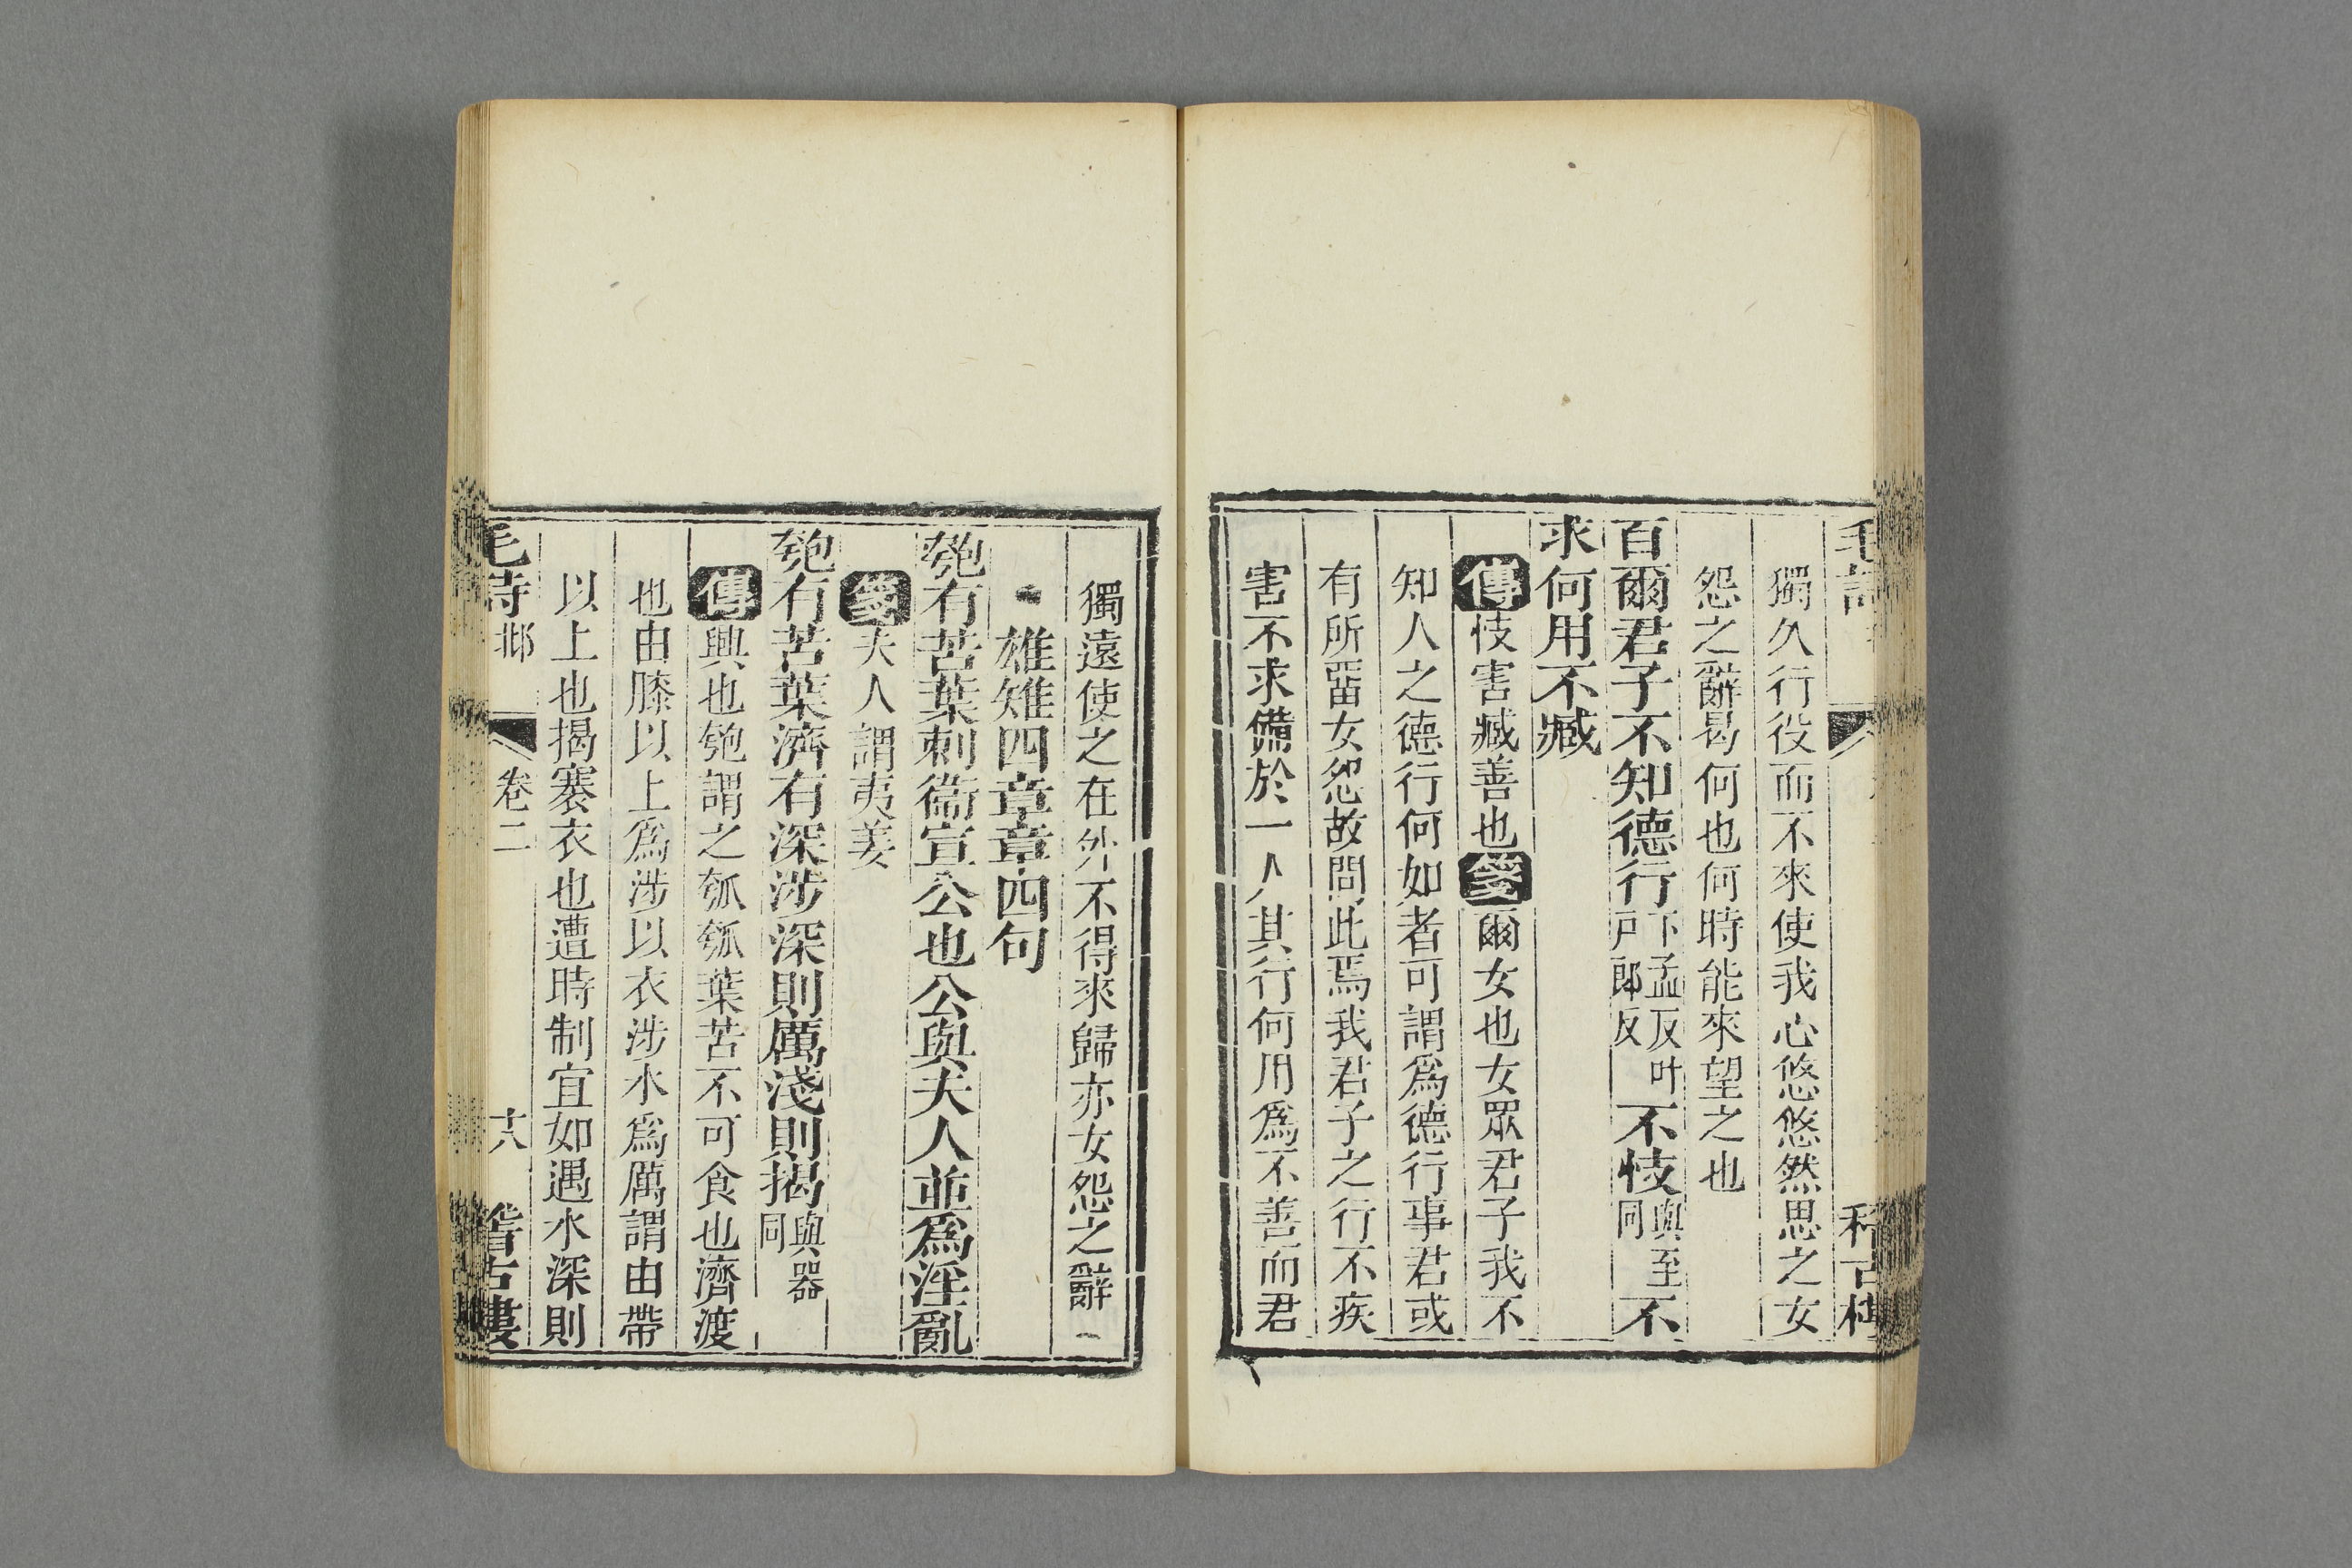 獨久行役而不來使我心悠悠然思之女
怨之辭曷何也何時能來望之也
百爾君子不知德行下孟反叶戸郎反不忮與至同不
求何用不臧
傳忮害臧善也箋爾女也女眾君子我不
知人之德行何如者可謂爲德行事君或
有所畱女怨故問此焉我君子之行不疾
害不求備於一人其行何用爲不善而君
獨遠使之在外不得來歸亦女怨之辭
雄雉四章章四句
匏有苦葉刺衞宣公也公與夫人並爲淫亂
箋夫人謂夷姜
匏有苦葉濟有深涉深則厲淺則揭與器同
傳興也匏謂之瓠瓠葉苦不可食也濟渡
也由膝以上爲涉以衣涉水爲厲謂由帶
以上也揭褰衣也遭時制宜如遇水深則
毛詩 邶 卷二 十八 稽古樓